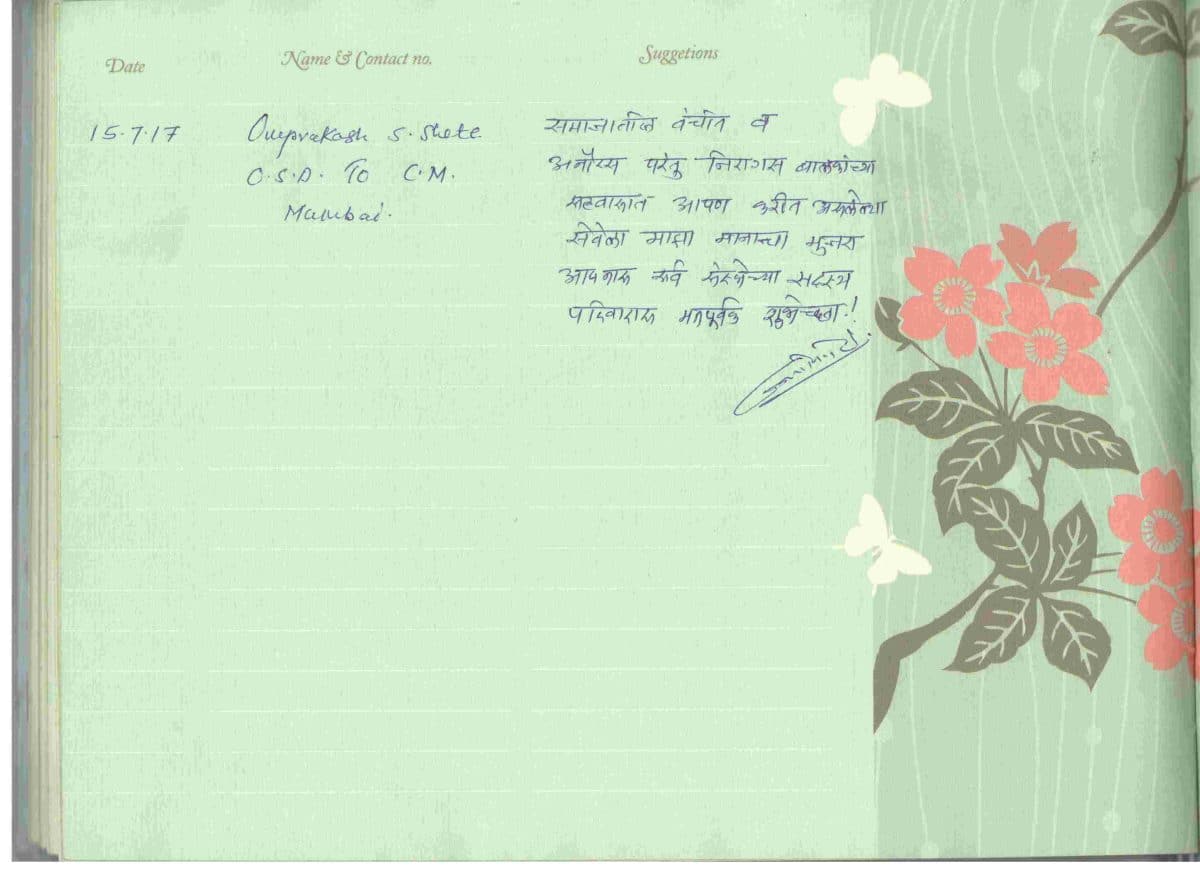 Date Name & Contact no. Suggetions
15.7.17 Omprakash S. Shete समाजातील वंचीत व
O.S.D. To C.M. अनौरस परंतु निरागस बालकांच्या
Mumbai. सहवासात आपण करीत असलेल्या
सेवेला माझा मानाचा मुजरा
आपणास सर्व संस्थेच्या सदस्य
परिवारास मनपूर्वक शुभेच्छा!